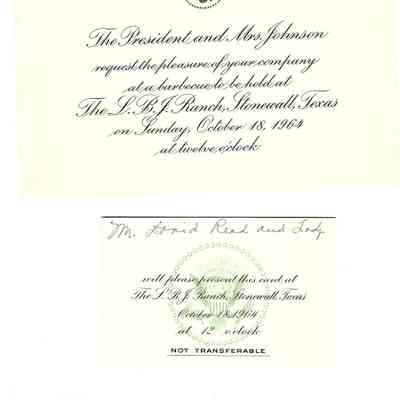 The President and Mrs. Johnson
request the pleasure of your company
at a barbecue to be held at
The L. B. J. Ranch, Stonewall, Texas
on Sunday, October 18, 1964
at twelve o'clock
Mr. David Read and Lady
will please present this card at
The L. B. J. Ranch, Stonewall, Texas
October 18, 1964
at 12 o'clock
NOT TRANSFERABLE